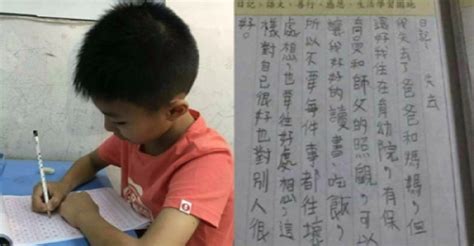 日記、語文、善行、感恩、生活學習園地
日記：失去
我失去了爸爸和媽媽，但
還好我住在育幼院，有保
育員和師父的照顧，可以
讓我好好的讀書，吃飯，
所以不要每件事都往壞
處想，也要往好處想，這
樣對自己很好也對別人很
好。